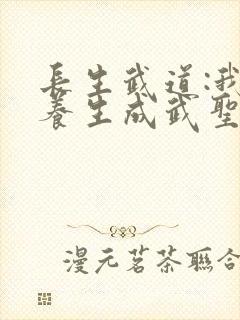 長生武道:我
養生成武聖
漫元茗茶聯合